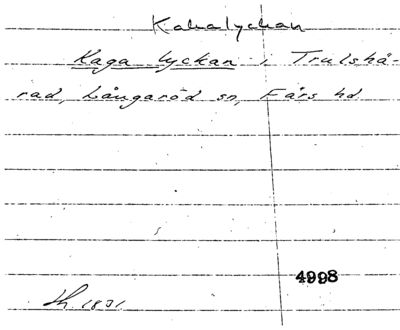 Kakalyckan
Kaga lyckan i Trulshä-
rad, Långaröd sn, Färs hd
4998
Lh. 1831